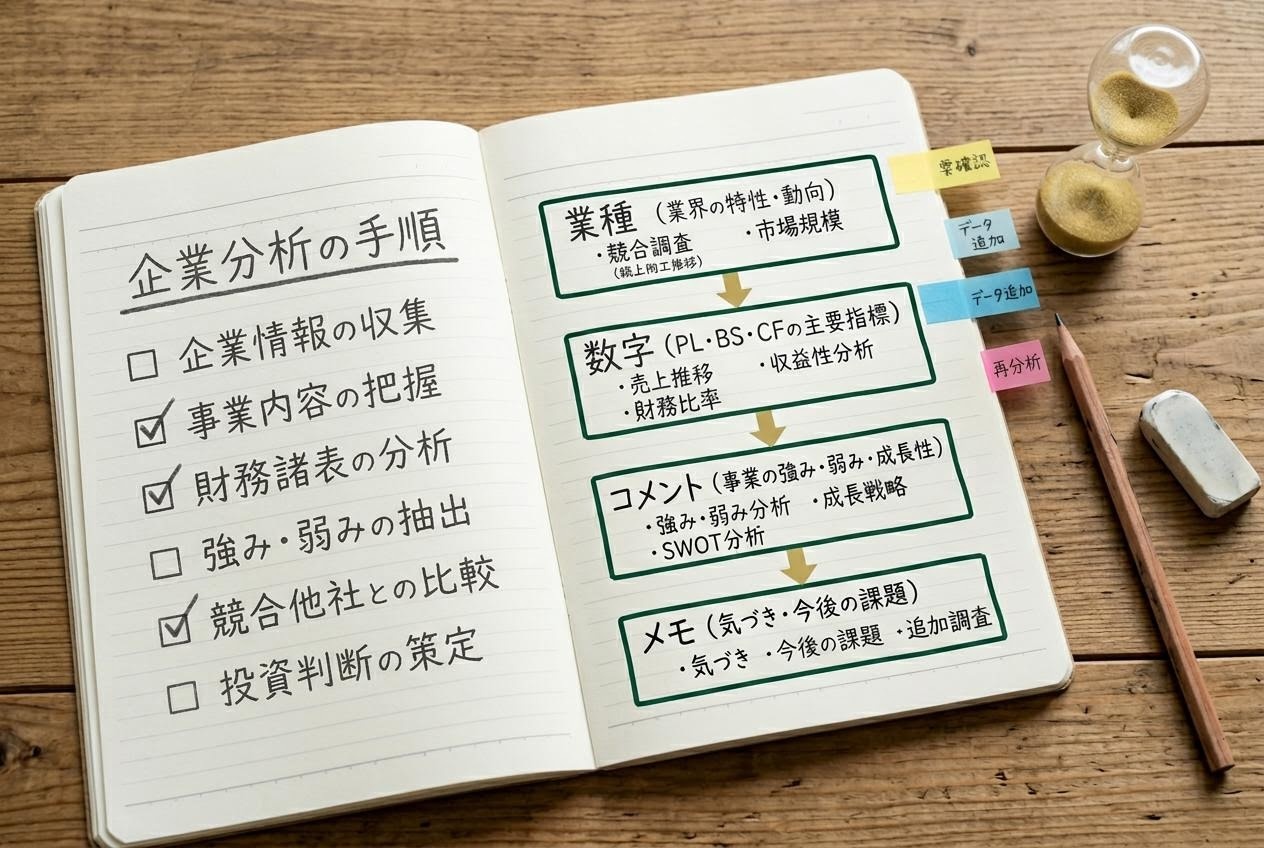 企業分析の手順
□ 企業情報の収集
☑ 事業内容の把握
☑ 財務諸表の分析
□ 強み・弱みの抽出
☑ 競合他社との比較
□ 投資判断の策定
業種（業界の特性・動向）
・競合調査 ・市場規模
数字（PL・BS・CFの主要指標）
・売上推移 ・収益性分析
・財務比率
コメント（事業の強み・弱み・成長性）
・強み・弱み分析 ・成長戦略
・SWOT分析
メモ（気づき・今後の課題）
・気づき ・今後の課題 ・追加調査
要確認
データ
追加
データ追加
再分析